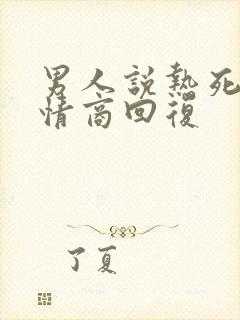 男人說熱死
情商回復
了夏